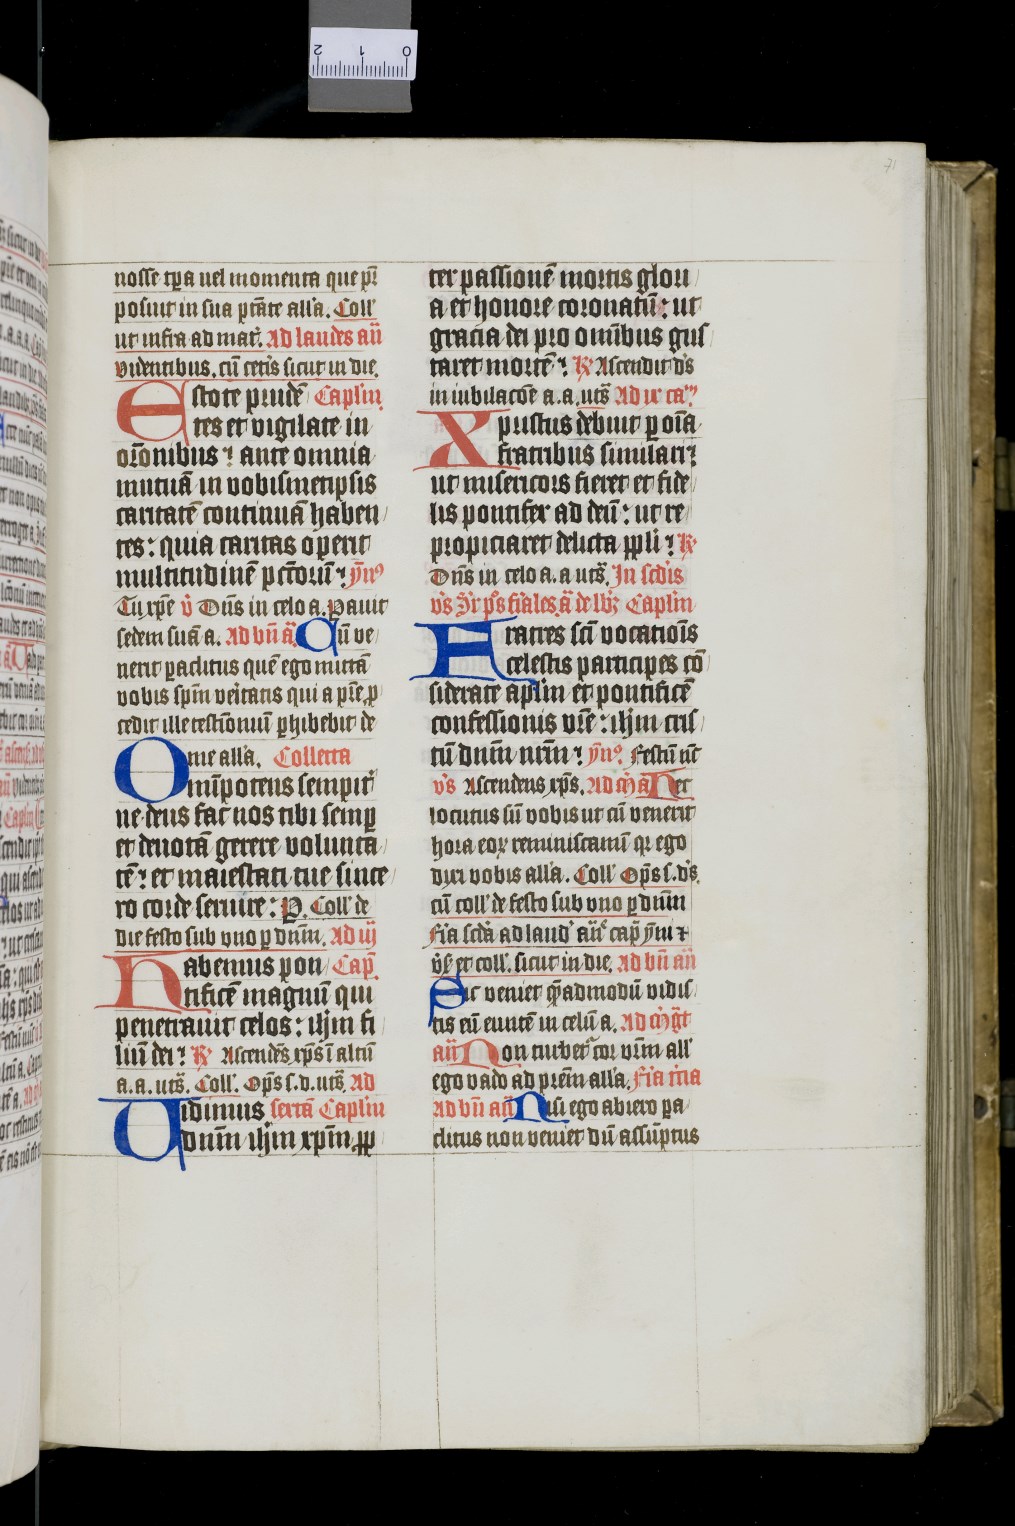 nosse tp̄a uel momenta que pr̄
posuit in sua ptāte all'a. Coll'
ut infra ad mat'. Ad laudes an̄
videntibus. cū cet̄is sicut in die.
Estote prudē Capl'm
tes et vigilate in
or̄onibus ⁊ ante omnia
mutuā in vobismetipsis
caritatē continuā haben
tes: quia caritas operit
multitudinē pctōrū ⁊ ym̄9
Tu xp̄e v̄ Dn̄s in celo a. Pauit
sedem suā a. Ad bn̄ ā Cū ve
nerit paclitus quē ego mittā
vobis sp̄m veitatis qui a pr̄e p
cedit ille testimoniū phibebit de
me all'a. Collecta
Omīpotens sempit'
ne deus fac nos tibi semp
et deuotā gerere volunta
tē: et maiestati tue since
ro corde seruire: P. Coll' de
die festo sub vno p dnm̄. Ad iij
Habemus pon Cap̄
tificē magnū qui
penetrauit celos: ih̄m fi
liū dei ⁊ R' Ascendēs xp̄s ī altū
a. a. uts̄. Coll'. Op̄s s. d. uts̄. Ad
Uidimus sextā Capl'm
dnm̄ ih̄m xp̄m pp
ter passionē mortis glori
a et honore coronatū: ut
gracia dei pro omībus gus
taret mortē ⁊ R' Ascendit ds̄
in iubilacōe a. a. uts̄ Ad ix ca'm
Xpristus debuit p oīa
fratribus similari:
ut misericors fieret et fide
lis pontifex ad deū: ut re
propiciaret delicta ppli ⁊ R'
Dn̄s in celo a. a uts̄. In scd̄is
vs̄ sr' ps̄ fīales ā de lbr' Capl'm
Fratres scī vocatiōis
celestis participes cō
siderate apl'm et pontificē
confessionis vr̄e: ih̄m cris
tū dnm̄ nrm̄ ⁊ ym̄9. Festū nūc
vs̄ Ascendens xp̄s. Ad m̄ ā Hec
locutus sū vobis ut cū venerit
hora eoꝝ reminiscamī qr ego
dixi vobis all'a. Coll' Op̄s s. ds̄.
cū coll' de festo sub vno p dnm̄
Fīa scd̄a ad laud' an̄ cap̄ ym̄ ⁊
vs̄ et coll'. sicut in die. Ad bn̄ an̄
Sic veniet qēadmodū vidis
tis eū euntē in celū a. Ad m̄gt̄
an̄ Non turbet' cor vrm̄ all'
ego vado ad prēm all'a. Fīa tcīa
Ad bn̄ an̄ Nisi ego abiero pa
clitus non veniet dū assūptus